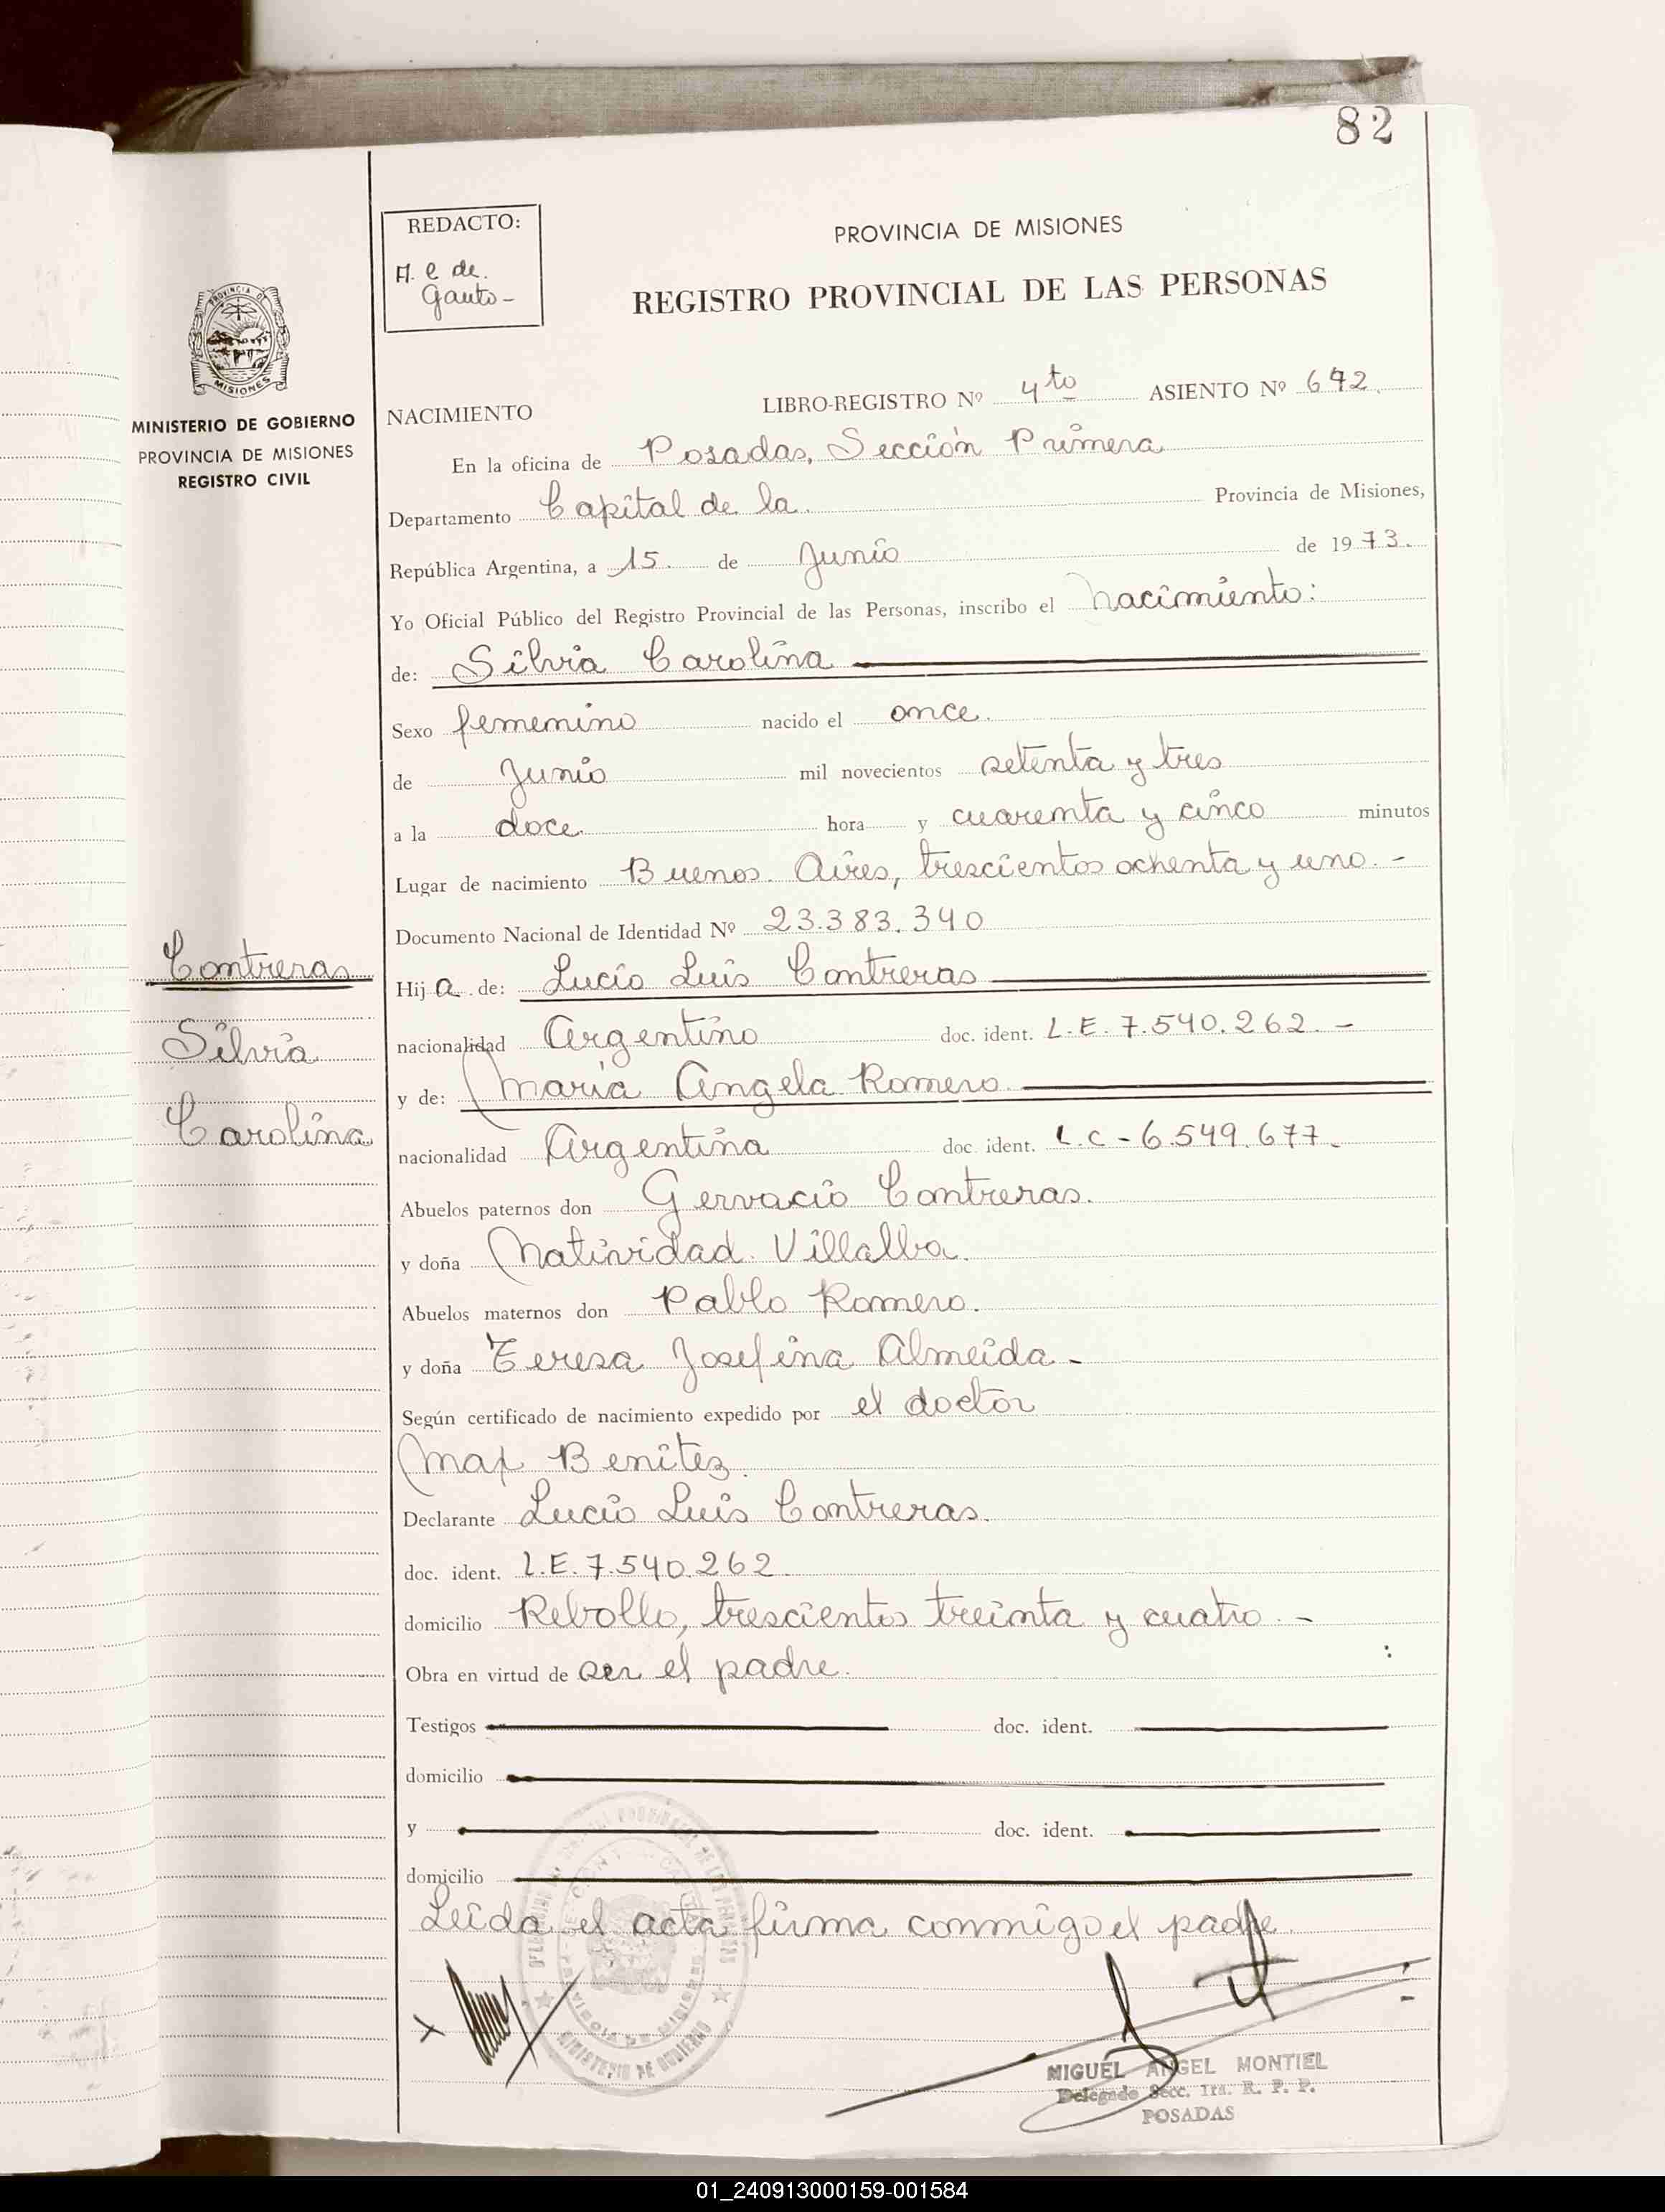 82
REDACTO:
A. E de.
Gauto -
PROVINCIA DE MISIONES
REGISTRO PROVINCIAL DE LAS PERSONAS
PROVINCIA DE
MISIONES
MINISTERIO DE GOBIERNO
PROVINCIA DE MISIONES
REGISTRO CIVIL
NACIMIENTO LIBRO-REGISTRO Nº 4to ASIENTO Nº 642.
En la oficina de Posadas, Sección Primera
Departamento Capital de la. Provincia de Misiones,
República Argentina, a 15. de Junio de 1973.
Yo Oficial Público del Registro Provincial de las Personas, inscribo el nacimiento:
de: Silvia Carolina
Sexo femenino nacido el once.
de Junio mil novecientos setenta y tres
a la doce. hora y cuarenta y cinco minutos
Lugar de nacimiento Buenos. Aires, trescientos ochenta y uno. -
Documento Nacional de Identidad Nº 23.383.340
Contreras
Hij a. de: Lucio Luis Contreras
Silvia
nacionalidad Argentino doc. ident. L.E. 7.540.262. -
y de: María Angela Romero.
Carolina
nacionalidad Argentina doc. ident. L.C - 6.549.677.
Abuelos paternos don Gervacio Contreras.
y doña Natividad. Villalba.
Abuelos maternos don Pablo Romero.
y doña Teresa Josefina Almeida -
Según certificado de nacimiento expedido por el doctor
Max Benitez.
Declarante Lucio Luis Contreras.
doc. ident. L.E. 7.540.262
domicilio Rebollo, trescientos treinta y cuatro. -
Obra en virtud de ser el padre.
Testigos doc. ident.
domicilio
y doc. ident.
domicilio
Leida el acta firma conmigo el padre.
MINISTERIO DE GOBIERNO
MIGUEL ANGEL MONTIEL
Delegado Secc. 1ra. R. P. P.
POSADAS
01_240913000159-001584